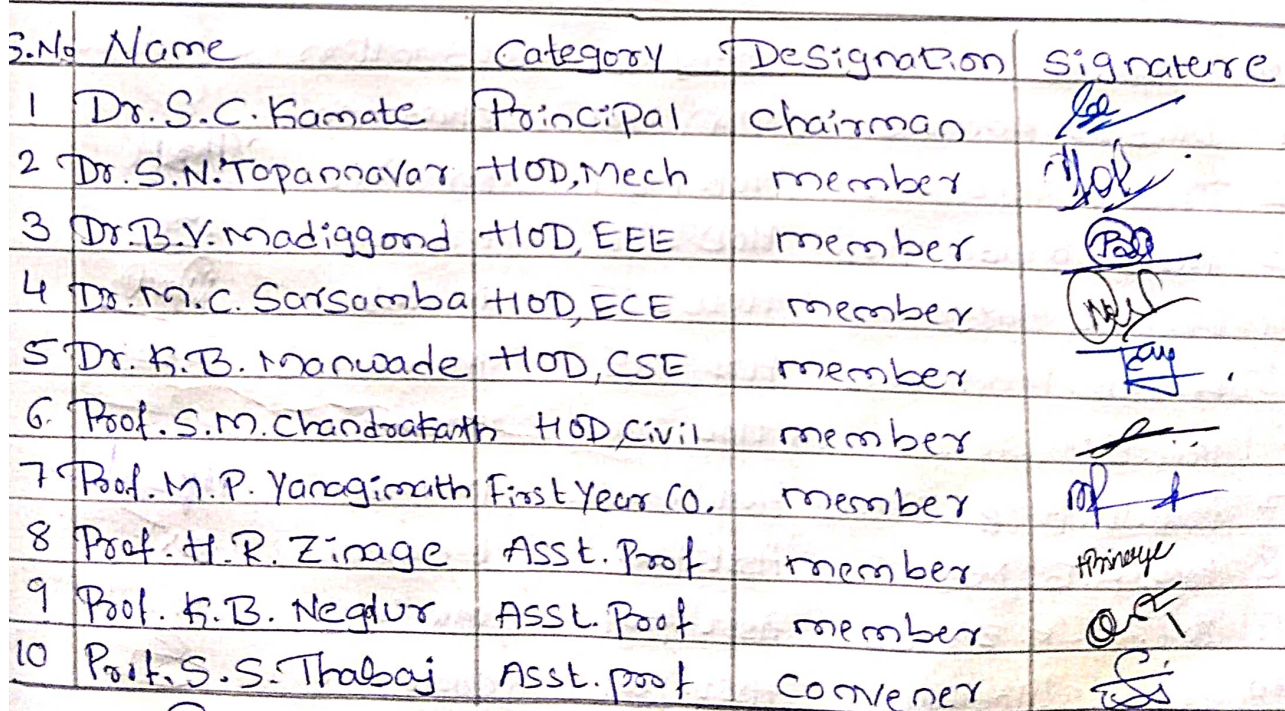 S.No Name Category Designation Signature
1 Dr. S.C. Kamate Principal Chairman
2 Dr. S.N. Topannavar HOD, Mech member
3 Dr. B.V. Madiggond HOD, EEE member
4 Dr. M.C. Sarsamba HOD, ECE member
5 Dr. K.B. Manwade HOD, CSE member
6. Prof. S.M. Chandrakanth HOD, Civil member
7 Prof. M.P. Yanagimath First Year CO. member
8 Prof. H.R. Zinage Asst. Prof member
9 Prof. K.B. Neglur Asst. Prof member
10 Prof. S.S. Thabaj Asst. prof Convener